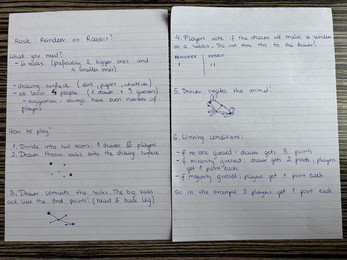 Rock Reindeer or Rabbit?
What you need?
- 6 rocks (preferably 2 bigger ones and
4 smaller ones)
- drawing surface (dirt, paper, whatever)
- at least 4 people (1 drawer + 3 guessers)
- suggestion: always have even number
of players
How to play?
1. Divide into two teams: 1 drawer & players
2. Drawer throws rocks onto the drawing surface
3. Drawer connects the rocks. The big rocks
are the end points! (head & back leg)
4. Players vote if the drawer will make a reindeer
or a rabbit. Do not show this to the drawer!
REINDEER RABBIT
I II
5. Drawer the animal!
6. Winning conditions:
- if no one guessed: drawer gets 3 points
- if minority guessed: drawer gets 2 points, players
get 1 point each
- if majority guessed: players get 1 point each
So in the example 2 players get 1 point each